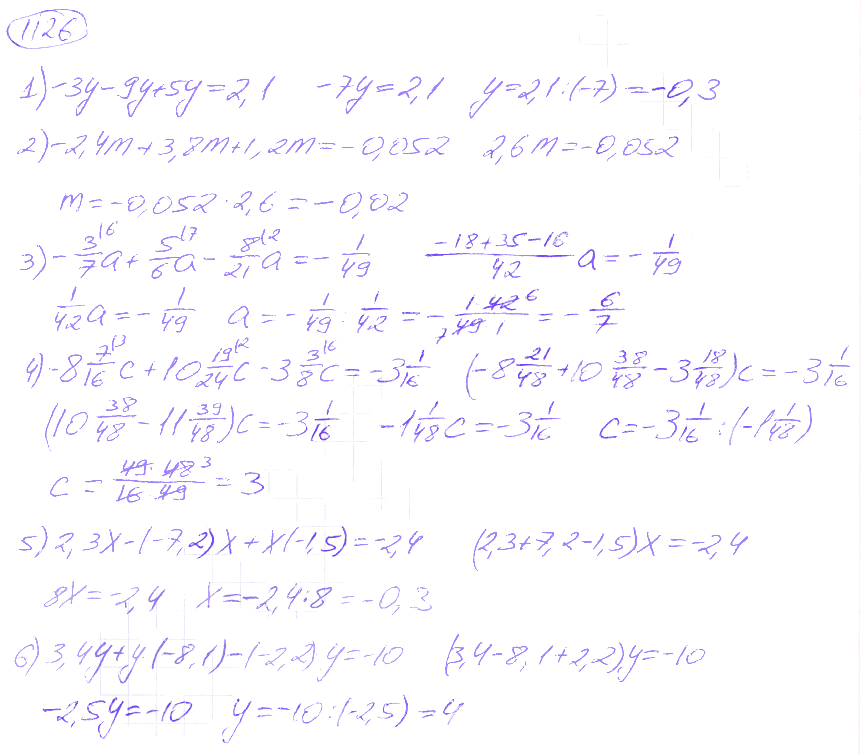 1126
1) -3y-9y+5y=2,1 -7y=2,1 y=2,1:(-7)=-0,3
2) -2,4m+3,8m+1,2m=-0,052 2,6m=-0,052
m=-0,052·2,6=-0,02
3) -3/7^{16}a+5/6^{17}a-8/21^{12}a=-1/49 (-18+35-16)/42 a=-1/49
1/42 a=-1/49 a=-1/49:1/42=-(1·42 6)/(7 49 1)=-6/7
4) -8 7/16^{13}c+10 19/24^{12}c-3 3/8^{16}c=-3 1/16 (-8 21/48+10 38/48-3 18/48)c=-3 1/16
(10 38/48-11 39/48)c=-3 1/16 -1 1/48 c=-3 1/16 c=-3 1/16:(-1 1/48)
c=(49·48 3)/(16·49)=3
5) 2,3x-(-7,2)x+x(-1,5)=-2,4 (2,3+7,2-1,5)x=-2,4
8x=-2,4 x=-2,4:8=-0,3
6) 3,4y+y(-8,1)-(-2,2)y=-10 (3,4-8,1+2,2)y=-10
-2,5y=-10 y=-10:(-2,5)=4